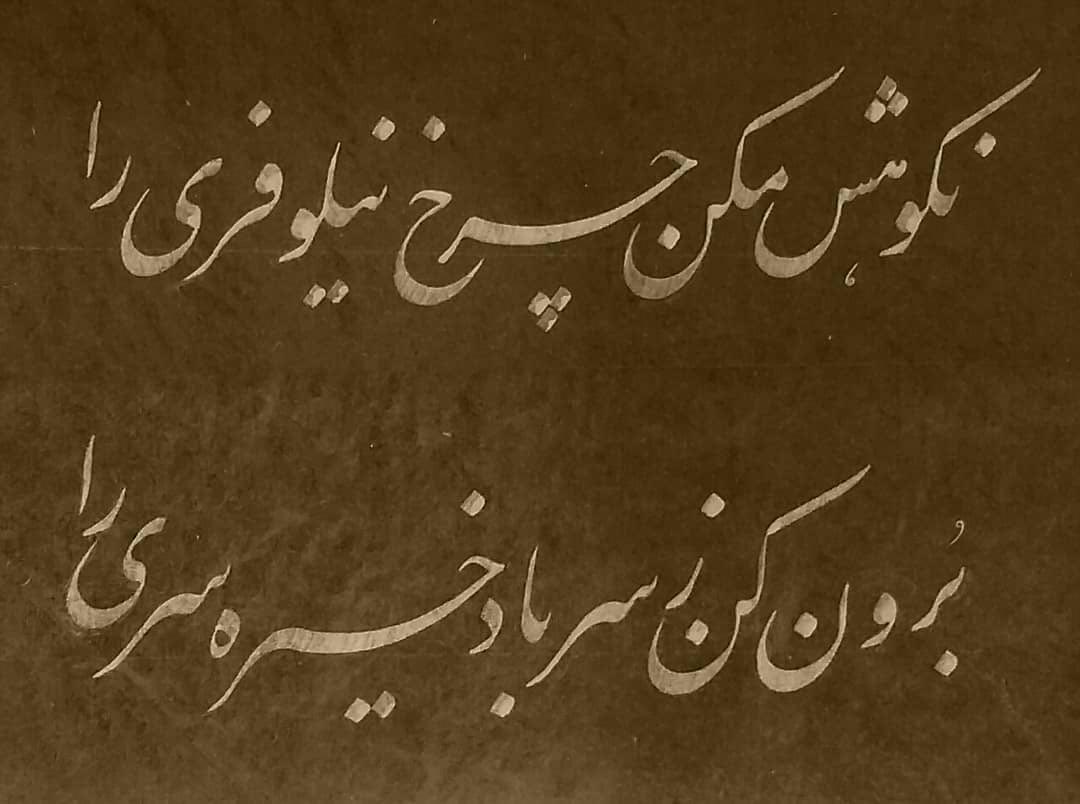 نکوهش مکن چرخ نیلوفری را
بُرون کن ز سر باد خیره سری را